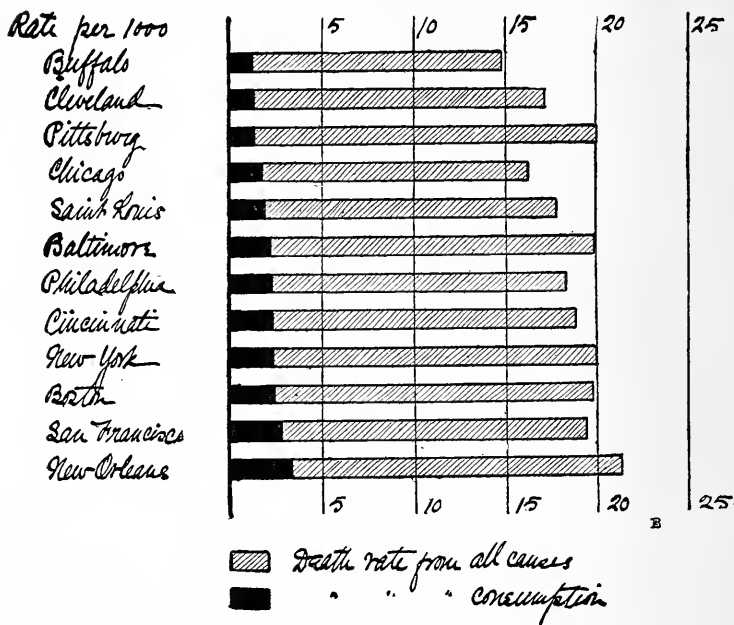 Rate per 1000 5 10 15 20 25
Buffalo
Cleveland
Pittsburg
Chicago
Saint Louis
Baltimore
Philadelphia
Cincinnati
New York
Boston
San Francisco
New Orleans
5 10 15 20 25
B
Death rate from all causes
" " " consumption